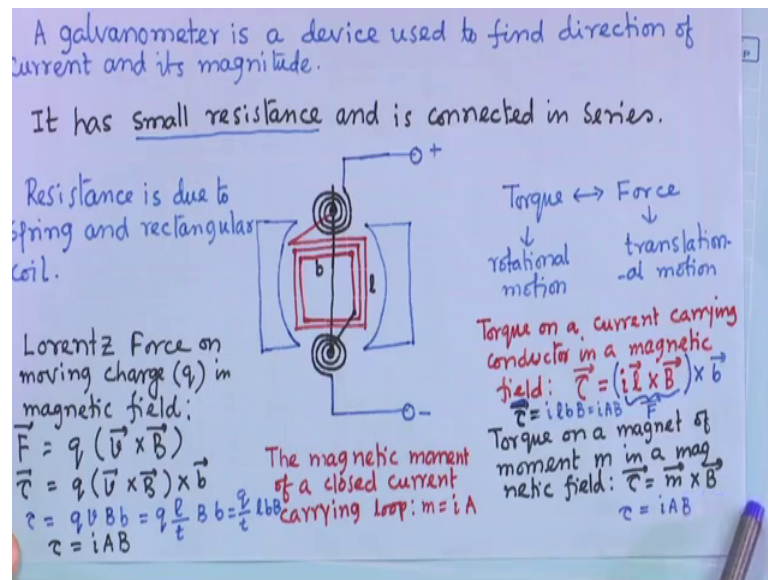 A galvanometer is a device used to find direction of
current and its magnitude.
It has small resistance and is connected in series.
Resistance is due to
spring and rectangular
coil.
+
b
l
-
Torque ↔ Force
↓ ↓
rotational translation-
motion -al motion
Lorentz Force on
moving charge (q) in
magnetic field:
F⃗ = q (v⃗ × B⃗)
τ⃗ = q (v⃗ × B⃗) × b⃗
τ = q v B b = q l/t B b = q/t l b B
τ = i A B
The magnetic moment
of a closed current
carrying loop: m = i A
Torque on a current carrying
conductor in a magnetic
field: τ⃗ = (i l⃗ × B⃗) × b⃗
τ = i l b B = i A B F⃗
Torque on a magnet of
moment m in a mag
netic field: τ⃗ = m⃗ × B⃗
τ = i A B